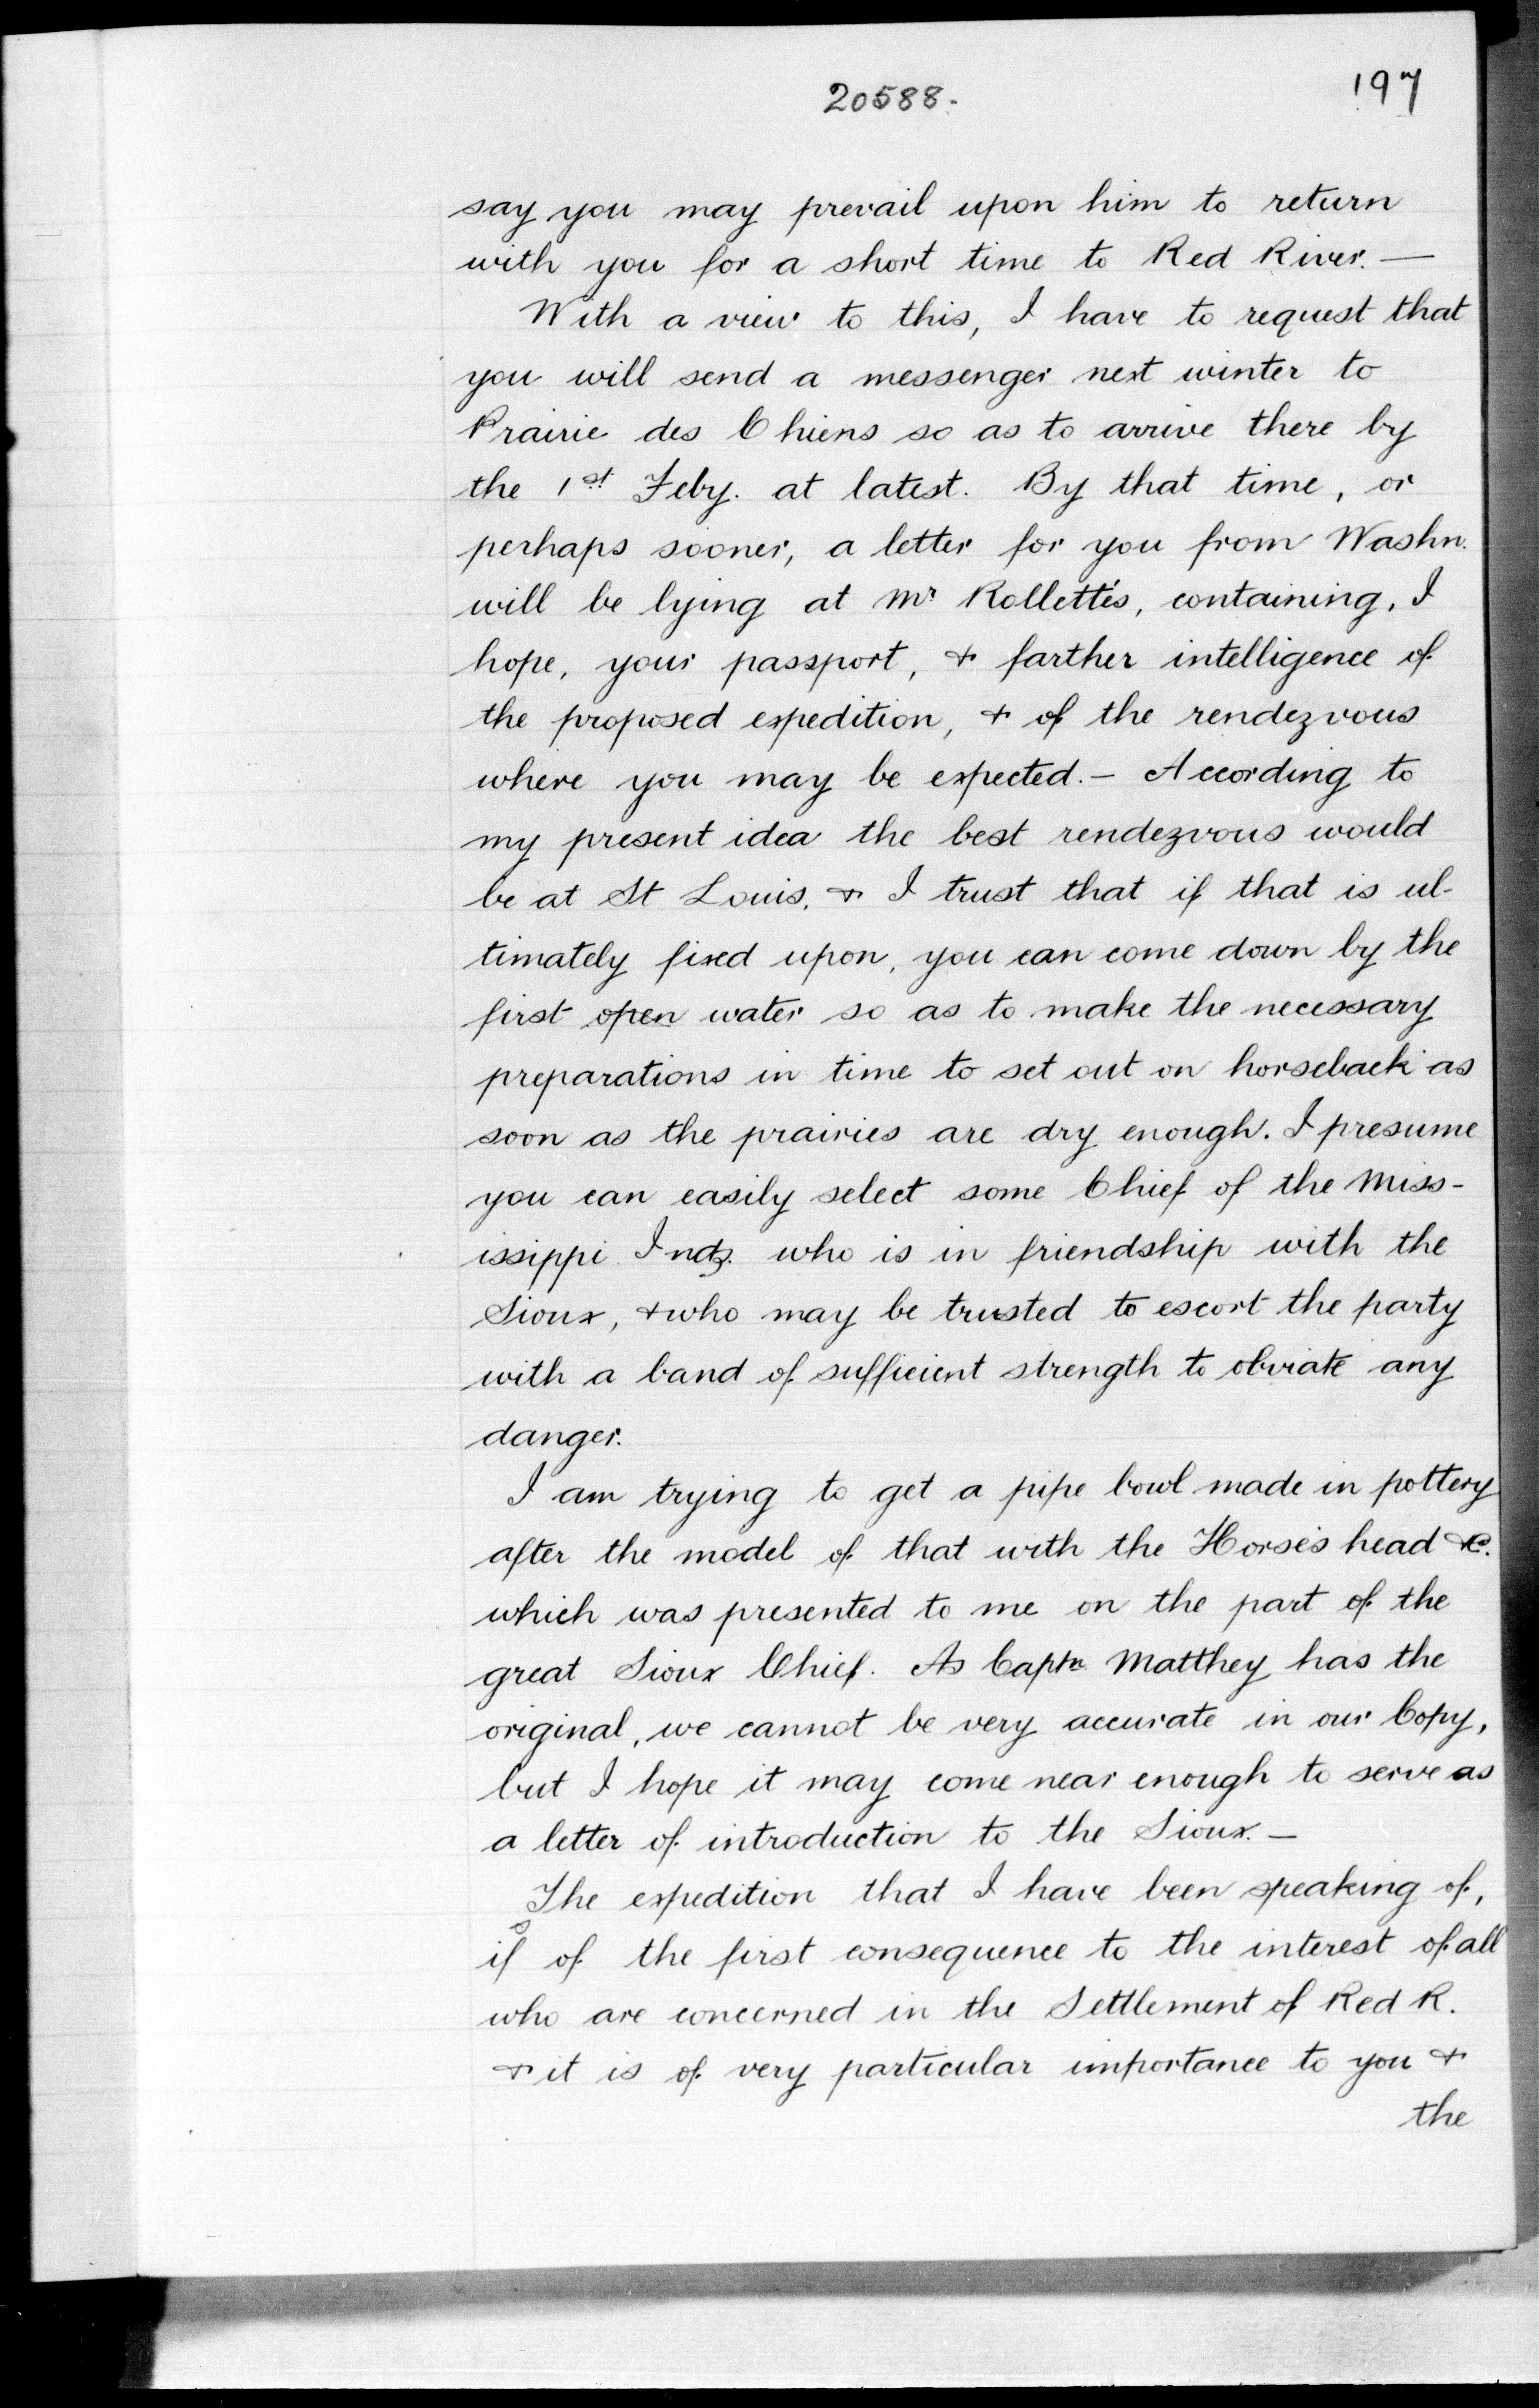 20588.
197
say you may prevail upon him to return
with you for a short time to Red River. —
With a view to this, I have to request that
you will send a messenger next winter to
Prairie des Chiens so as to arrive there by
the 1st Feby. at latest. By that time, or
perhaps sooner, a letter for you from Washn.
will be lying at Mr Rollette's, containing, I
hope, your passport, & farther intelligence of
the proposed expedition, & of the rendezvous
where you may be expected. – According to
my present idea the best rendezvous would
be at St Louis, & I trust that if that is ul-
timately fixed upon, you can come down by the
first open water so as to make the necessary
preparations in time to set out on horseback as
soon as the prairies are dry enough. I presume
you can easily select some Chief of the Miss-
issippi Inds. who is in friendship with the
Sioux, & who may be trusted to escort the party
with a band of sufficient strength to obviate any
danger.
I am trying to get a pipe bowl made in pottery
after the model of that with the Horse's head &c.
which was presented to me on the part of the
great Sioux Chief. As Captn. Matthey has the
original, we cannot be very accurate in our Copy,
but I hope it may come near enough to serve as
a letter of introduction to the Sioux. –
The expedition that I have been speaking of,
is of the first consequence to the interest of all
who are concerned in the Settlement of Red R.
& it is of very particular importance to you &
the